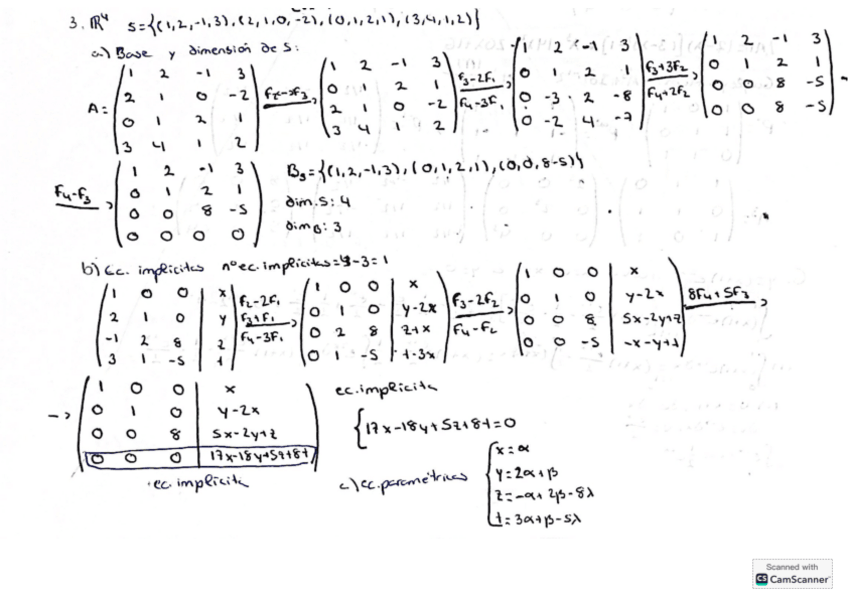 3. ℝ⁴ S={(1,2,-1,3),(2,1,0,-2),(0,1,2,1),(3,4,1,2)}
a) Base y dimensión de S:
A= (1 2 -1 3 / 2 1 0 -2 / 0 1 2 1 / 3 4 1 2) F2<->F3 (1 2 -1 3 / 0 1 2 1 / 2 1 0 -2 / 3 4 1 2) F3-2F1 F4-3F1 (1 2 -1 3 / 0 1 2 1 / 0 -3 2 -8 / 0 -2 4 -7) F3+3F2 F4+2F2 (1 2 -1 3 / 0 1 2 1 / 0 0 8 -5 / 0 0 8 -5)
F4-F3 (1 2 -1 3 / 0 1 2 1 / 0 0 8 -5 / 0 0 0 0)
Bs={(1,2,-1,3),(0,1,2,1),(0,0,8-5)}
dim.S: 4
dim B: 3
b) Ec. implícitas nº ec. implícitas=4-3=1
(1 0 0 | x / 2 1 0 | y / -1 2 8 | z / 3 1 -5 | t) F2-2F1 F3+F1 F4-3F1 (1 0 0 | x / 0 1 0 | y-2x / 0 2 8 | z+x / 0 1 -5 | t-3x) F3-2F2 F4-F2 (1 0 0 | x / 0 1 0 | y-2x / 0 0 8 | 5x-2y+z / 0 0 -5 | -x-y+t) 8F4+5F3
-> (1 0 0 | x / 0 1 0 | y-2x / 0 0 8 | 5x-2y+z / 0 0 0 | 17x-18y+5z+8t)
ec. implícita
ec. implícita
{17x-18y+5z+8t=0
c) ec. paramétricas
x=α
y=2α+β
z=-α+2β-8λ
t=3α+β-5λ
Scanned with
CS CamScanner